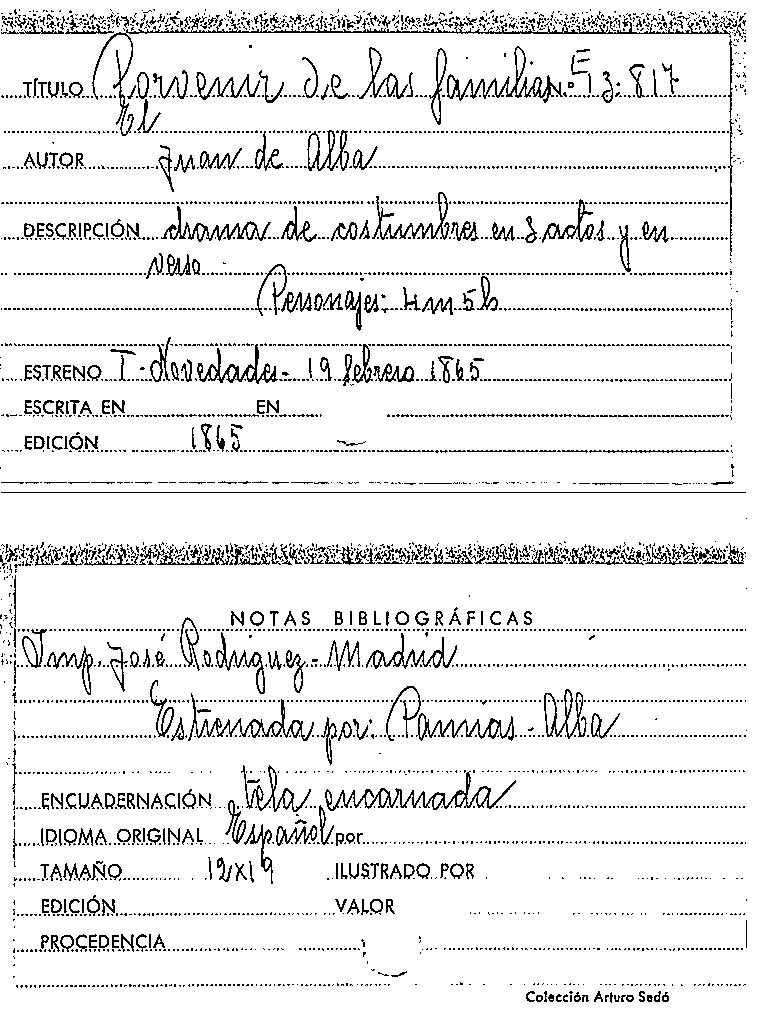 TÍTULO Porvenir de las familias N.º E 3: 817
El
AUTOR Juan de Alba
DESCRIPCIÓN drama de costumbres en 3 actos y en
verso
Personajes: 4m 5h
ESTRENO T-Novedades- 19 febrero 1865
ESCRITA EN EN
EDICIÓN 1865
NOTAS BIBLIOGRÁFICAS
Imp. José Rodríguez-Madrid
Estrenada por: Pamias-Alba
ENCUADERNACIÓN tela encarnada
IDIOMA ORIGINAL Español por
TAMAÑO 12x19 ILUSTRADO POR
EDICIÓN VALOR
PROCEDENCIA
Colección Arturo Sedó